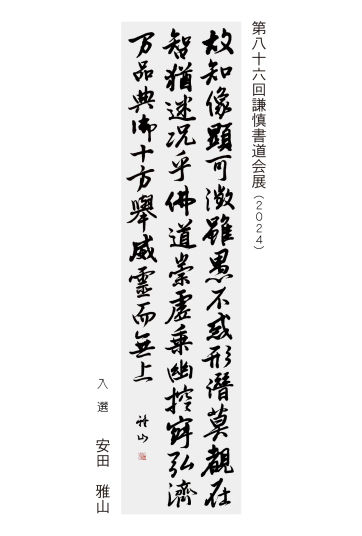 第八十六回謙慎書道会展（２０２４）
故知像顕可徴雖愚不惑形潜莫覩在
智猶迷況乎佛道崇虚乗幽控寂弘済
万品典御十方擧威靈而無上
雅山
入選　安田　雅山